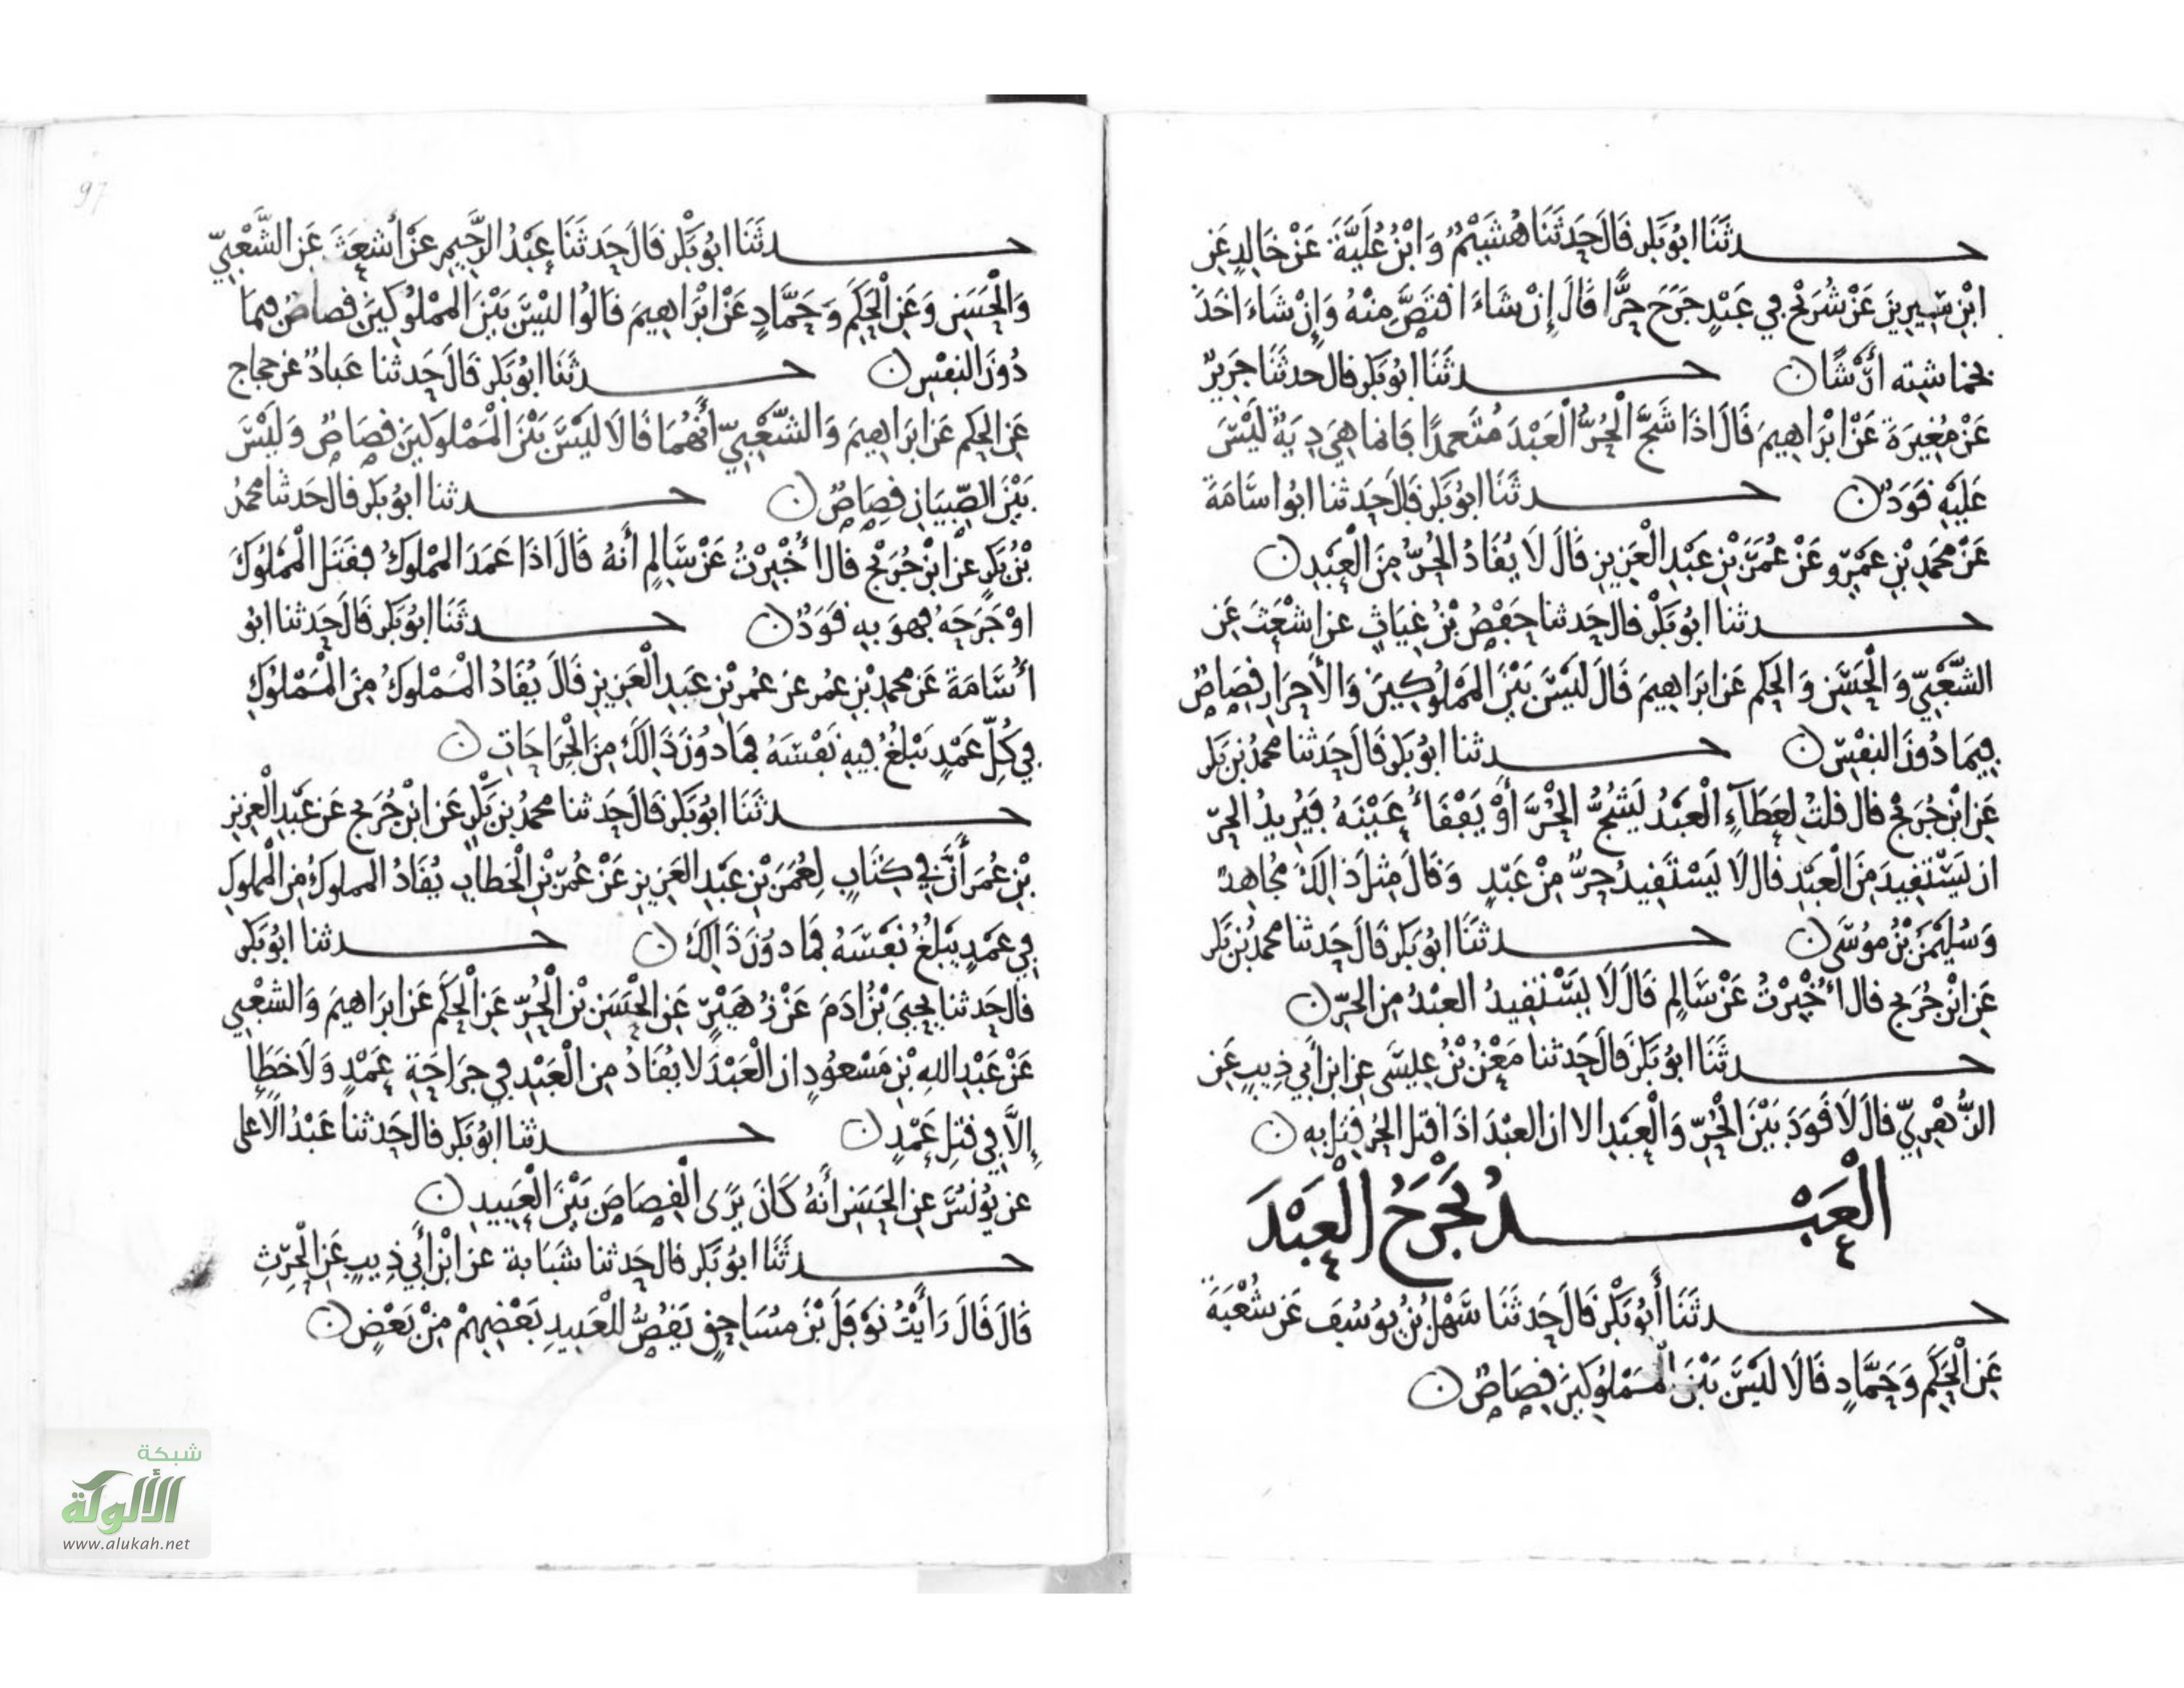 حدثَنَا ابُو بَكر قَالَ حَدثَنَا هُشَيْمٌ وَابْنُ عُلَيَّةَ عَنْ خَالِدٍ عَنِ
ابْنِ سِيرِينَ عَنْ شُرَيْحٍ فِي عَبْدٍ جَرَحَ حُرًّا قَالَ إِنْ شَاءَ اقتَصَّ مِنْهُ وَإِنْ شَاءَ اخَذَ
حدثَنَا ابُو بَكر قال حدثَنَا جَرِيرٌ
عَنْ مُغِيرَةَ عَنْ ابْرَاهِيمَ قَالَ اذَا شَجَّ الْحُرُّ الْعَبْدَ مُتَعمدًا فَانما هِيَ دِيَةٌ لَيْسَ
عَلَيْهِ قَوَدٌ ن حدثَنَا ابُو بَكر قَالَ حَدثنا ابُوا سَامَةَ
عَنْ محَمدِ بْنِ عَمْرٍو عَنْ عُمَرَ بْنِ عَبْدِ الْعَزِيزِ قَالَ لَا يُقَادُ الْحُرُّ مِنَ الْعَبْدِ ن
حدثنا ابُو بَكْر قال حَدثنا حَفْصُ بْنُ غِيَاثٍ عن اشْعَثَ عَنِ
الشَّعْبِيِّ وَالْحَسَنِ وَالْحَكمِ عَن ابرَاهِيمَ قَالَ لَيْسَ بَيْنَ الْمَمْلُوكِينَ وَالأَحْرَارِ قِصَاصٌ
فِيمَا دُونَ النفْسِ ن حدثنا ابُو بَكر قَالَ حَدثنا محمدُ بْن بَكر
عَنِ ابْنِ جُرَيْج قال قلتُ لِعَطَآءٍ الْعَبْدُ يَشُجُّ الْحُرَّ أَوْ يَفْقَأُ عَيْنَهُ فَيُرِيدُ الحرّ
ان يَسْتَقِيدَ مِنَ الْعَبْدِ قال لَا يَسْتَقِيدُ حرٌّ مِنْ عَبْدٍ وَقَالَ مِثل ذَالِكَ مُجَاهِدٌ
وَسُلَيْمَنُ بْنُ مُوسَى ن حدثنَا ابُو بَكر قَالَ حَدثنا محمدُ بْن بَكر
عَنِ ابْنِ جُرَيج قال أُخْبِرْتُ عَنْ سَالِمٍ قَالَ لَا يَسْتَقِيدُ العبْدُ مِنَ الحرّ ن
حدثَنَا ابُو بَكر قَالَ حَدثنا مَعْنُ بْنُ عِيسَى عنِ ابن أَبي ذِيبٍ عَن
الزُّهْرِيِّ قالَ لَا قَوَدَ بَيْنَ الْحُرِّ وَالْعَبْدِ الا ان العبْدَ اذَا قتل الحُر قُتِل بِهِ ن
الْعَبْدُ يَجْرَحُ الْعَبْدَ
حدثَنَا أَبُو بَكْر قَالَ حَدثَنَا سَهْلُ بْنُ يُوسُفَ عَن شُعْبَةَ
عَنِ الْحَكَمِ وَحَمَّادٍ قَالَا لَيْسَ بَيْنَ الْمَمْلُوكينَ قِصَاصٌ ن
97
حدثَنَا ابُو بَكْر قَالَ حَدثَنَا عَبْدُ الرَّحِيمِ عَنْ أَشْعَثَ عَنِ الشَّعْبِيِّ
وَالْحَسَنِ وَعَنِ الْحَكَمِ وَحَمَّادٍ عَنْ ابْرَاهِيمَ قَالُوا لَيْسَ بَيْنَ الْمَمْلُوكِينَ قِصاصٌ فِيمَا
دُونَ النفْسِ ن حدثَنَا ابُو بَكر قَالَ حَدثنا عَبادٌ عَن حجاج
عَنِ الحكم عَن ابرَاهِيمَ وَالشَّعْبِيِّ أَنَّهُمَا قَالَا لَيْسَ بَيْنَ الْمَمْلوكينَ قِصَاصٌ وَلَيْسَ
بَيْنَ الصِّبيَانِ قِصَاصٌ ن حدثنا ابُو بَكر قال حَدثنا محمدُ
بْنُ بَكرٍ عَنْ ابْنِ جُرَيْج قال أُخْبِرْتُ عَنْ سَالِمٍ أَنهُ قَالَ اذَا عَمَدَ المملوكُ فقَتَلَ الْمَمْلُوكَ
اوْ جَرَحَهُ فهوَ بِهِ قَوَدٌ ن حدثَنَا ابُو بَكر قَالَ حَدثنا ابُو
أُسَامَةَ عَن محمدِ بْنِ عمرو عَن عُمر بْنِ عَبدِ الْعَزِيزِ قَالَ يُقَادُ الْمَمْلوكُ مِنَ الْمَمْلُوكِ
فِي كُلِّ عَمْدٍ يَبْلُغُ فِيهِ نَفْسَهُ فمَا دُونَ ذَالِكَ مِنَ الْجِرَاحَاتِ ن
حدثَنَا ابُو بَكر قَالَ حَدثنا محمدُ بْن بَكْرٍ عَن ابْنِ جُرَيج عَن عَبْدِ الْعَزِيزِ
بْنِ عُمَرَ أَنَّ فِي كِتَابٍ لِعُمَرَ بْنِ عَبْدِ العَزِيزِ عَنْ عُمَرَ بْنِ الْخَطابِ يُقَادُ المملوكُ مِن المملوكِ
فِي عَمْدٍ يَبْلُغُ نَفْسَهُ فمَا دُونَ ذَالِكَ ن حدثنا ابُو بَكر
قال حَدثنا يَحْيَى بْنُ ادَمَ عَنْ زُهَيْرٍ عَنِ الْحَسَنِ بْنِ الْحُرِّ عَنِ الْحَكَم عَن ابرَاهيمَ وَالشعْبي
عَنْ عَبْدِ اللهِ بْنِ مَسْعُودٍ ان الْعَبْدَ لا يُقَادُ مِن الْعَبْدِ فِي جِرَاحَةِ عَمْدٍ وَلَا خَطَإٍ
إِلَّا فِي قتْلِ عَمْدٍ ن حدثنا ابُو بَكر قال حَدثنا عَبْدُ الاعلى
عن يُونُسَ عَنِ الحَسَنِ أَنهُ كَانَ يَرَى الْقِصَاصَ بَيْنَ الْعَبِيدِ ن
حدثَنَا ابُو بَكر قال حَدثنا شَبَابة عَن ابْنِ أَبِي ذِيبٍ عَنِ الْحرثِ
قَالَ قَالَ رَأَيْتُ نَوْفَلَ بْنَ مُسَاحِقٍ يَقُصُّ لِلْعَبِيدِ بَعْضِهِمْ مِنْ بَعْضٍ ن
شبكة
الألوكة
www.alukah.net